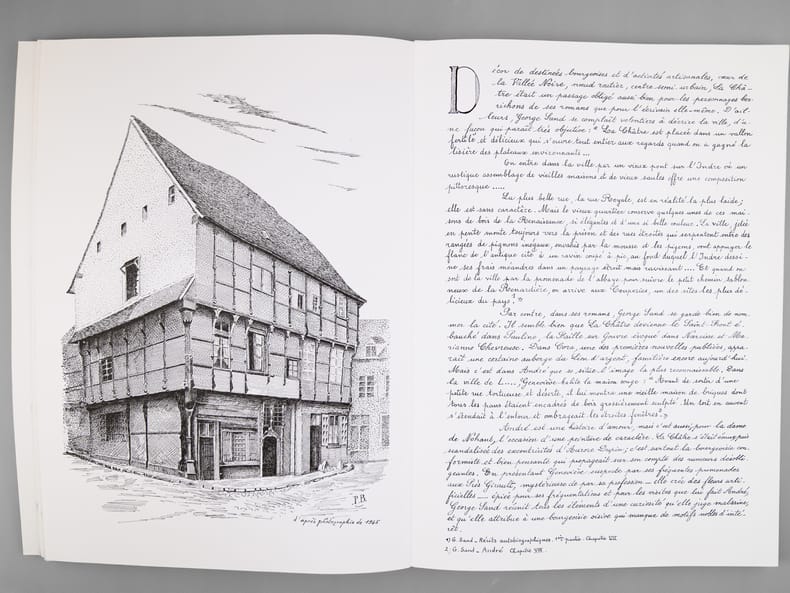 P.B.
d'après photographie de 1945
Décor de destinées bourgeoises et d'activités artisanales, cœur de
la Vallée Noire, nœud routier, centre semi-urbain, La Châ-
tre était un passage obligé aussi bien pour les personnages ber-
richons de ses romans que pour l'écrivain elle-même. D'ail-
leurs, George Sand se complait volontiers à décrire la ville, d'u-
ne façon qui parait très objective : "La Châtre est placée dans un vallon
fertile et délicieux qui s'ouvre tout entier aux regards quand on a gagné la
lisière des plateaux environnants ...
On entre dans la ville par un vieux pont sur l'Indre où un
rustique assemblage de vieilles maisons et de vieux saules offre une composition
pittoresque .....
La plus belle rue, la rue Royale, est en réalité la plus laide ;
elle est sans caractère. Mais le vieux quartier conserve quelques unes de ces mai-
sons de bois de la Renaissance, si élégantes et d'une si belle couleur. La ville, jetée
en pente monte toujours vers la prison et des rues étroites qui serpentent entre des
rangées de pignons inégaux, envahis par la mousse et les pigeons, vont appuyer le
flanc de l'antique cité à un ravin coupé à pic, au fond duquel l'Indre dessi-
ne ses frais méandres dans un paysage étroit mais ravissant .... Et quand on
sort de la ville par la promenade de l'abbaye pour suivre le petit chemin sablon-
neux de la Renardière, on arrive aux Couperies, un des sites les plus dé-
licieux du pays."
Par contre, dans ses romans, George Sand se garde bien de nom-
mer la cité. Il semble bien que La Châtre devienne le Saint-Front é-
bauché dans Pauline, la Faille sur Gouvre évoquée dans Narcisse et Ma-
rianne Chevreuse. Dans Cora, une des premières nouvelles publiées, appa-
raît une certaine auberge du Lion d'argent, familière encore aujourd'hui.
Mais c'est dans André que se situe l'image la plus reconnaissable. Dans
la ville de L...., Geneviève habite la maison rouge : "Avant de sortir d'une
petite rue tortueuse et déserte, il lui montra une vieille maison de briques dont
tous les pans étaient encadrés de bois grossièrement sculpté. Un toit en auvent
s'étendait à l'entour et ombrageait les étroites fenêtres."
André est une histoire d'amour, mais c'est aussi, pour la dame
de Nohant, l'occasion d'une peinture de caractère. La Châtre s'était émue puis
scandalisée des excentricités d'Aurore Dupin ; c'est surtout la bourgeoisie con-
formiste et bien pensante qui propageait sur son compte des rumeurs désobli-
geantes. En présentant Geneviève suspecte par ses fréquentes promenades
aux Prés Girault, mystérieuse de par sa profession - elle crée des fleurs arti-
ficielles - épiée pour ses fréquentations et pour les visites que lui fait André,
George Sand réunit tous les éléments d'une curiosité qu'elle juge malsaine,
et qu'elle attribue à une bourgeoisie oisive qui manque de motifs nobles d'inté-
rêt.
1) G. Sand - Récits autobiographiques. 1ère partie. Chapitre VII
2) G. Sand - André Chapitre VIII.